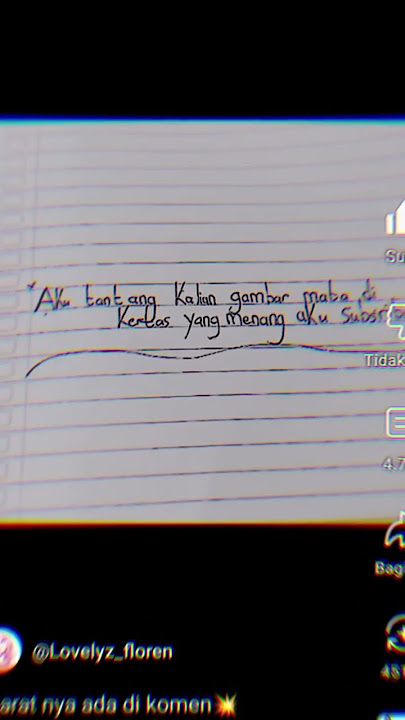 "Aku tantang Kalian gambar maba di
Kertas yang menang aku Subsri
Su
Tidak
4.7
Bag
451
@Lovelyz_floren
arat nya ada di komen💥